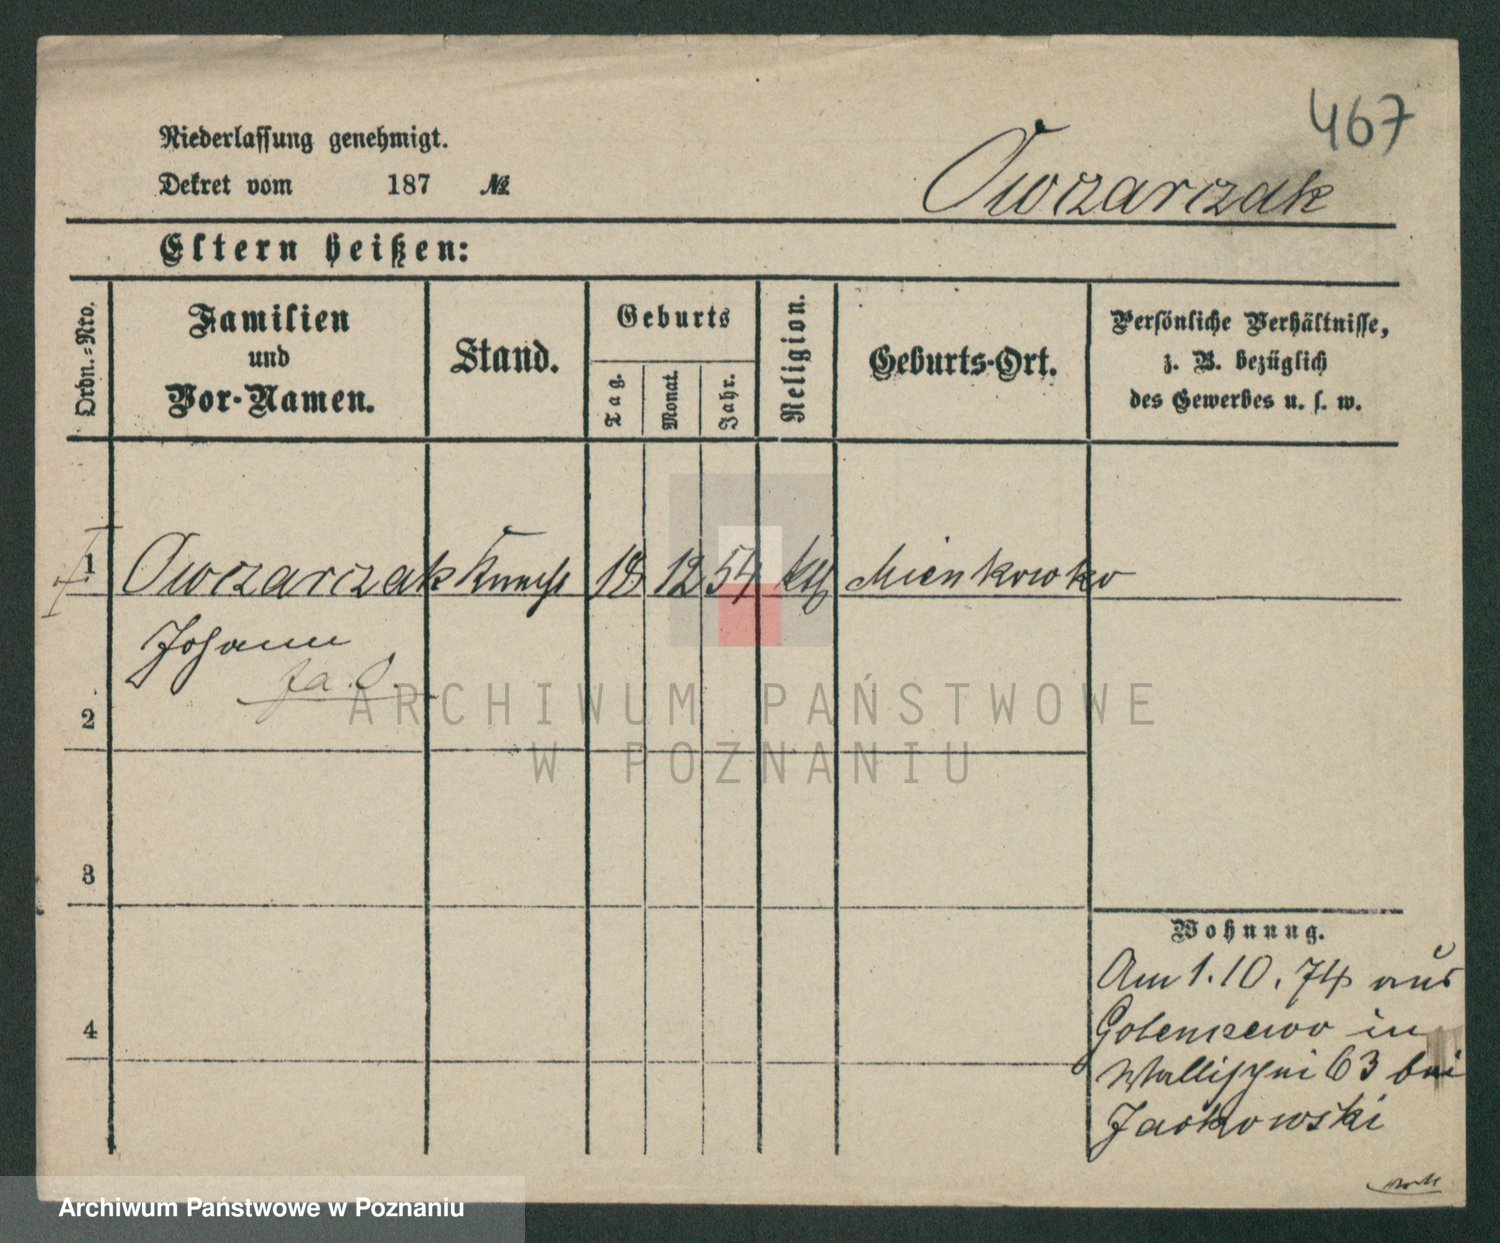 467
Niederlassung genehmigt.
Dekret vom 187 №
Owczarczak
Eltern heißen:
Ordn.-Nro.
Familien und Vor-Namen.
Stand.
Geburts
Tag.
Monat.
Jahr.
Religion.
Geburts-Ort.
Persönliche Verhältnisse,
z. B. bezüglich
des Gewerbes u. s. w.
1 Owczarczak Knecht 18 12 54 kth Mienkowko
Johann
2
3
4
Wohnung.
Am 1.10.74 aus
Golenczewo in
Wallischei 63 bei
ARCHIWUM PAŃSTWOWE
W POZNANIU
Archiwum Państwowe w Poznaniu